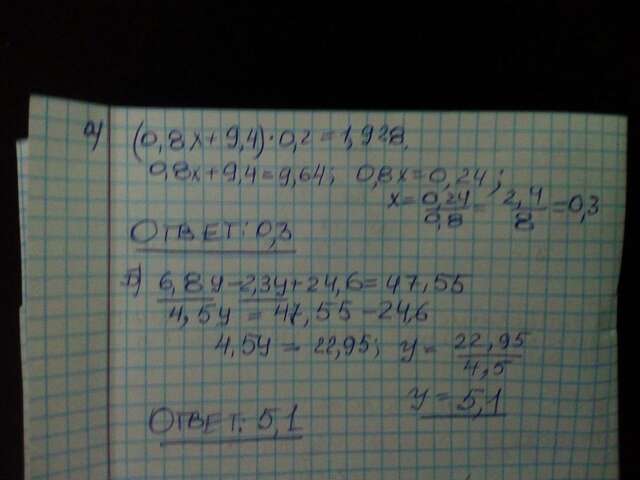 а) (0,8x+9,4)·0,2=1,928.
0,8x+9,4=9,64; 0,8x=0,24;
x=0,24/0,8=2,4/8=0,3
ОТВЕТ: 0,3
Б) 6,8y-2,3y+24,6=47,55
4,5y=47,55-24,6
4,5y=22,95; y=22,95/4,5
y=5,1
ОТВЕТ: 5,1